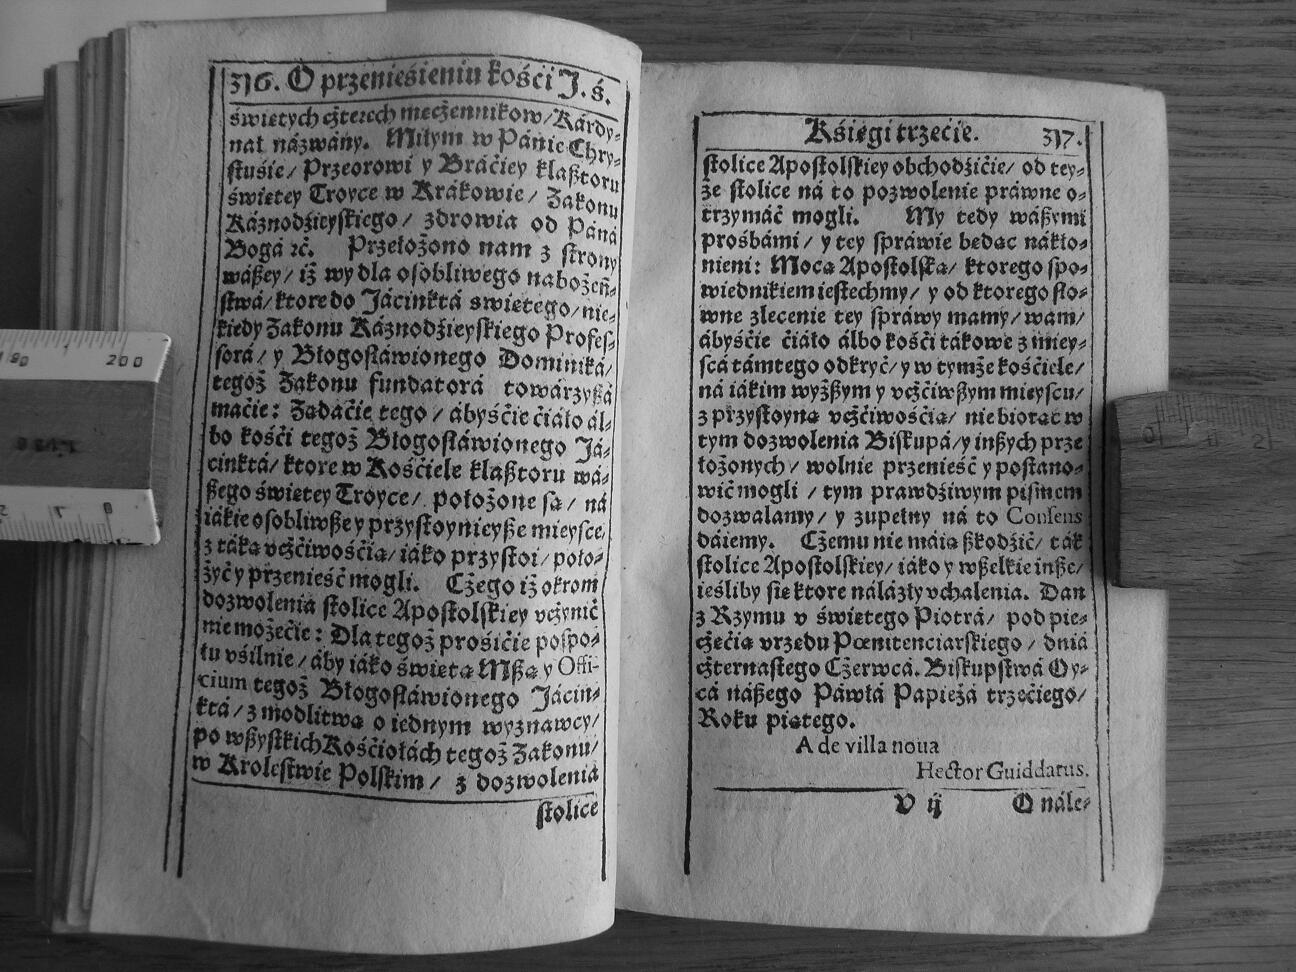 316. O przenieśieniu kośći J. ś.
świętych cżterech męcżennikow/ Kárdy-
nał názwány. Miłym w Pánie Chry-
stuśie/ Przeorowi y Bráćiey klasztoru
świętey Troyce w Krákowie/ Zakonu
Káznodźieyskiego/ zdrowia od Páná
Bogá ꝛć. Przełożono nam z strony
wászey/ iż wy dla osobliwego nabożeń-
stwá/ ktore do Jácinktá świętego/ nie-
kiedy Zakonu Káznodźieyskiego Profes-
sorá/ y Błogosłáwionego Dominiká/
tegoż Zakonu fundatorá towárzyszá
maćie: Żądaćie tego/ ábyśćie ćiáło ál-
bo kośći tegoż Błogosłáwionego Já-
cinktá/ ktore w Kośćiele klasztoru wá-
szego świętey Troyce/ położone są/ ná
iákie osobliwsze y przystoynieysze mieysce,
z táką vcżćiwośćią/ iáko przystoi/ poło-
żyć y przenieść mogli. Cżego iż okrom
dozwolenia stolice Apostolskiey vcżynić
nie możećie: Dla tegoż prośićie pospo-
łu vśilnie/ áby iáko święta Mszą y Offi-
cium tegoż Błogosłáwionego Jácin-
ktá/ z modlitwą o iednym wyznawcy/
po wszystkich Kośćiołách tegoż Zakonu/
w Krolestwie Polskim/ z dozwolenia
stolice
Kśięgi trzećie. 317.
stolice Apostolskiey obchodźićie/ od tey-
że stolice ná to pozwolenie práwne o-
trzymáć mogli. My tedy wászymi
prośbámi/ y tey spráwie będąc nákło-
nieni: Mocą Apostolską/ ktorego spo-
wiednikiem iestechmy/ y od ktorego sło-
wne zlecenie tey spráwy mamy/ wam/
ábyśćie ćiáło álbo kośći tákowe z miey-
scá támtego odkryć/ y w tymże kośćiele/
ná iákim wyższym y vcżćiwszym mieyscu/
z przystoyną vcżćiwośćią/ nie biorąc w
tym dozwolenia Biskupá/ y inszych prze
łożonych/ wolnie przenieść y postano-
wić mogli/ tym prawdźiwym pismem
dozwalamy/ y zupełny ná to Consens
dáiemy. Cżemu nie máią szkodźić/ ták
stolice Apostolskiey/ iáko y wszelkie insze/
ieśliby się ktore nálázły vchalenia. Dan
z Rzymu v świętego Piotrá/ pod pie-
cżęćią vrzędu Pœnitenciarskiego/ dniá
cżternastego Cżerwcá. Biskupstwá Oy-
cá nászego Páwłá Papieżá trzećiego/
Roku piątego.
A de villa noua
Hector Guiddatus.
V ij O nále-